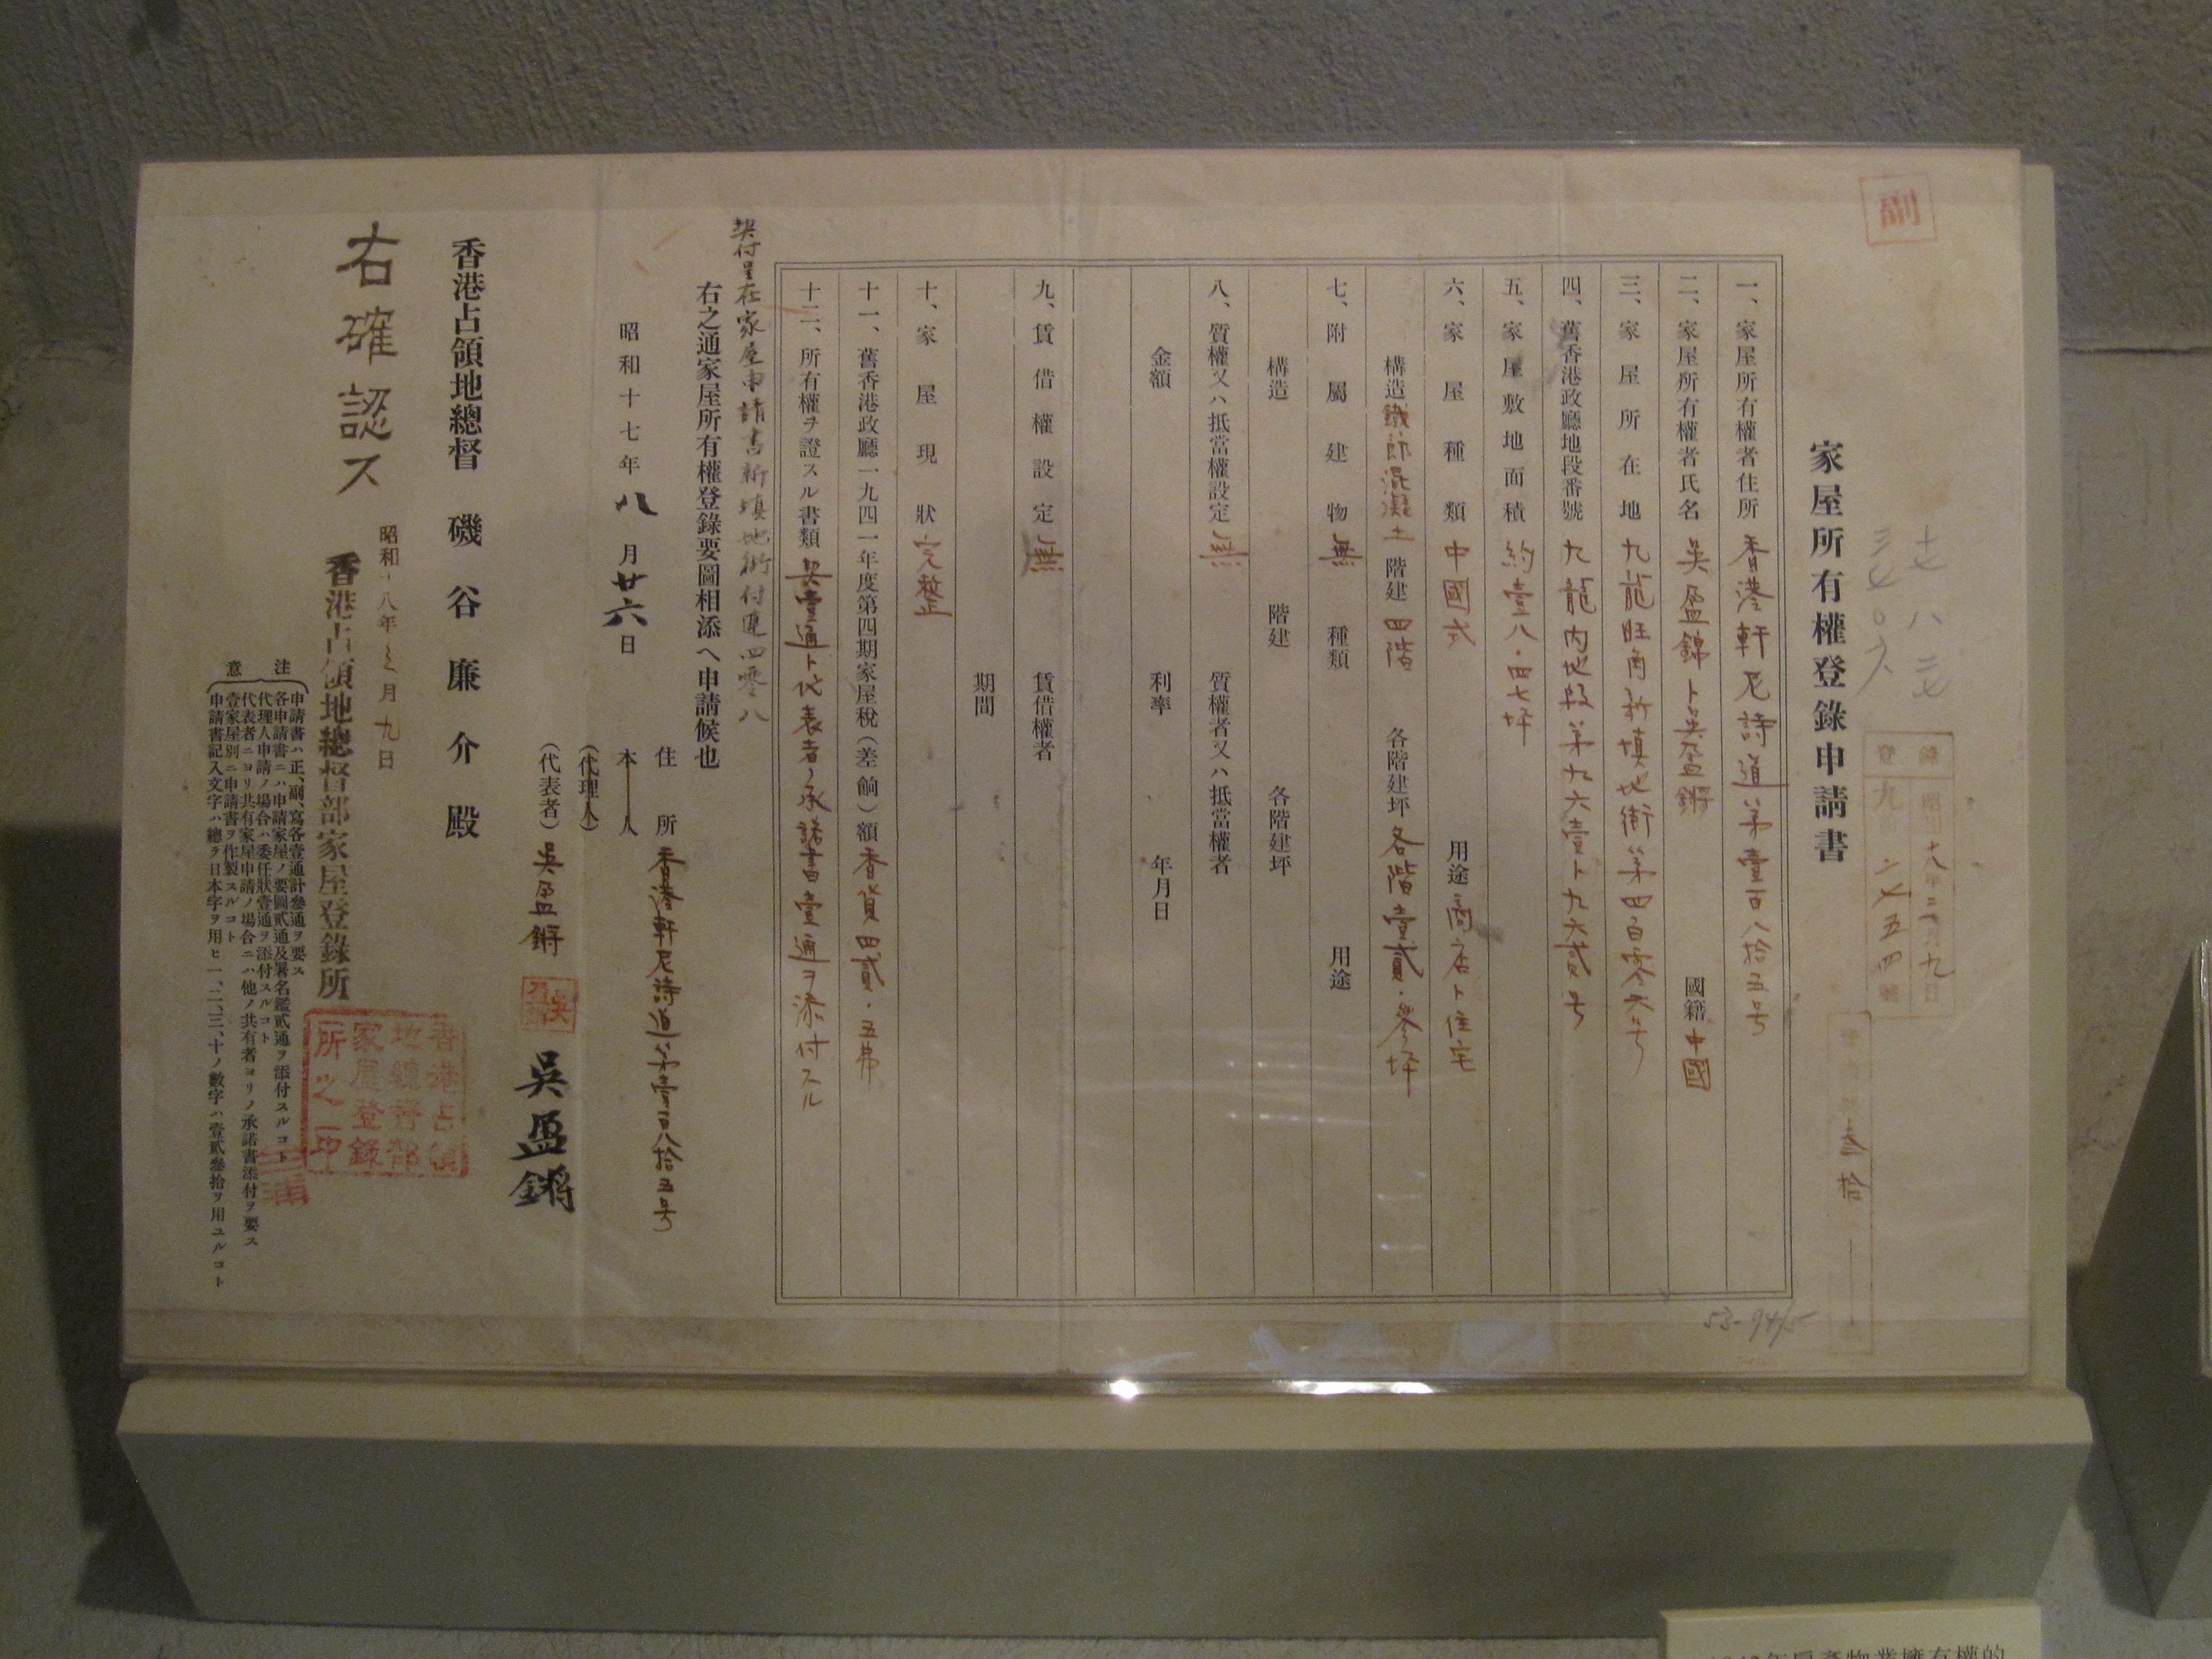 副
十七 八 二七
登錄
昭和十八年三月九日
家屋所有權登錄申請書
一、家屋所有權者住所 香港軒尼詩道第壹百八拾五号
二、家屋所有權者氏名 吳盈錦ト吳盈鏘 國籍 中國
三、家屋所在地 九龍旺角新填地街第四百零六号
四、舊香港政廳地段番號 九龍内地段第九六壹ト九六貳号
五、家屋敷地面積 約壹八・四七坪
六、家屋種類 中國式 用途 商店ト住宅
構造 鐵筋混凝土 階建 四階 各階建坪 各階壹貳・坪
七、附屬建物 無 種類 用途
構造 階建 各階建坪
八、質權又ハ抵當權設定 無 質權者又ハ抵當權者
金額 利率 年月日
九、賃借權設定 無 賃借權者
期間
十、家屋現狀 完整
十一、舊香港政廳一九四一年度第四期家屋稅(差餉)額 香貨四貳・五弗
十二、所有權ヲ證スル書類 契壹通ト代表者ノ承諾書壹通ヲ添付スル
契付呈在家屋申請書新填地街付連四零八
右之通家屋所有權登錄要圖相添ヘ申請候也
昭和十七年八月廿六日
住所 香港軒尼詩道第壹百八拾五号
本人
(代理人)
(代表者) 吳盈鏘 吳盈鏘
香港占領地總督 磯谷廉介殿
右確認ス
昭和十八年 月九日
香港占領地總督部家屋登錄所
香港占領地總督部家屋登錄所之印
注意
申請書ハ正、副、寫各壹通計參通ヲ要ス
各申請書ニハ申請家屋ノ要圖貳通及署名鑑貳通ヲ添付スルコト
代理人申請ノ場合ハ委任狀壹通ヲ添付スルコト
代表者ニヨリ共有家屋申請ノ場合ニハ他ノ共有者ヨリノ承諾書添付ヲ要ス
壹家屋別ニ申請書ヲ作製スルコト
申請書記入文字ハ總テ日本字ヲ用ヒ一、二、三、十ノ數字ハ壹貳參拾ヲ用ユルコト
53-94/5